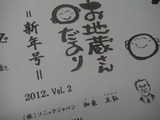 お地蔵さん
だより
＝新年号＝
2012. Vol. 2
(株)ソニックジャパン